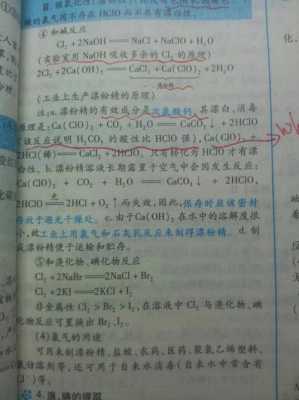 燥的氯气因不存在HClO而不具有漂白性。
④和碱反应
Cl₂+2NaOH══NaCl+NaClO+H₂O
(实验室用NaOH吸收多余的Cl₂的原理)
2Cl₂+2Ca(OH)₂══CaCl₂+Ca(ClO)₂+2H₂O
(工业上生产漂粉精的原理)
注:a.漂粉精的有效成分是次氯酸钙,其漂白、消毒
原理是:Ca(ClO)₂+CO₂+H₂O══CaCO₃↓+2HClO
该反应说明H₂CO₃的酸性比HClO强),Ca(ClO)₂+
2HCl(稀)══CaCl₂+2HClO,只有转化为HClO才有漂
白性。b.漂粉精溶液长期露置于空气中会因发生反应:
Ca(ClO)₂+CO₂+H₂O══CaCO₃↓+2HClO
2HClO══2HCl+O₂↑而失效,因此,保存时应该密封
存放于避光干燥处。c.由于Ca(OH)₂在水中的溶解度很
小,故工业上用氯气和石灰乳反应来制得漂粉精。d.制
成漂粉精便于运输和贮存。
⑤和溴化物、碘化物反应
Cl₂+2NaBr══2NaCl+Br₂
Cl₂+2KI══2KCl+I₂
非金属性Cl₂>Br₂>I₂,在溶液中Cl₂与溴化物、碘
化物反应可置换出Br₂、I₂。
(4)氯气的用途
可用来制漂粉精、盐酸、农药、医药、聚氯乙烯塑料、
氯仿溶剂等,还可用于自来水消毒(自来水中常含有
)等。
4.溴、碘的提取